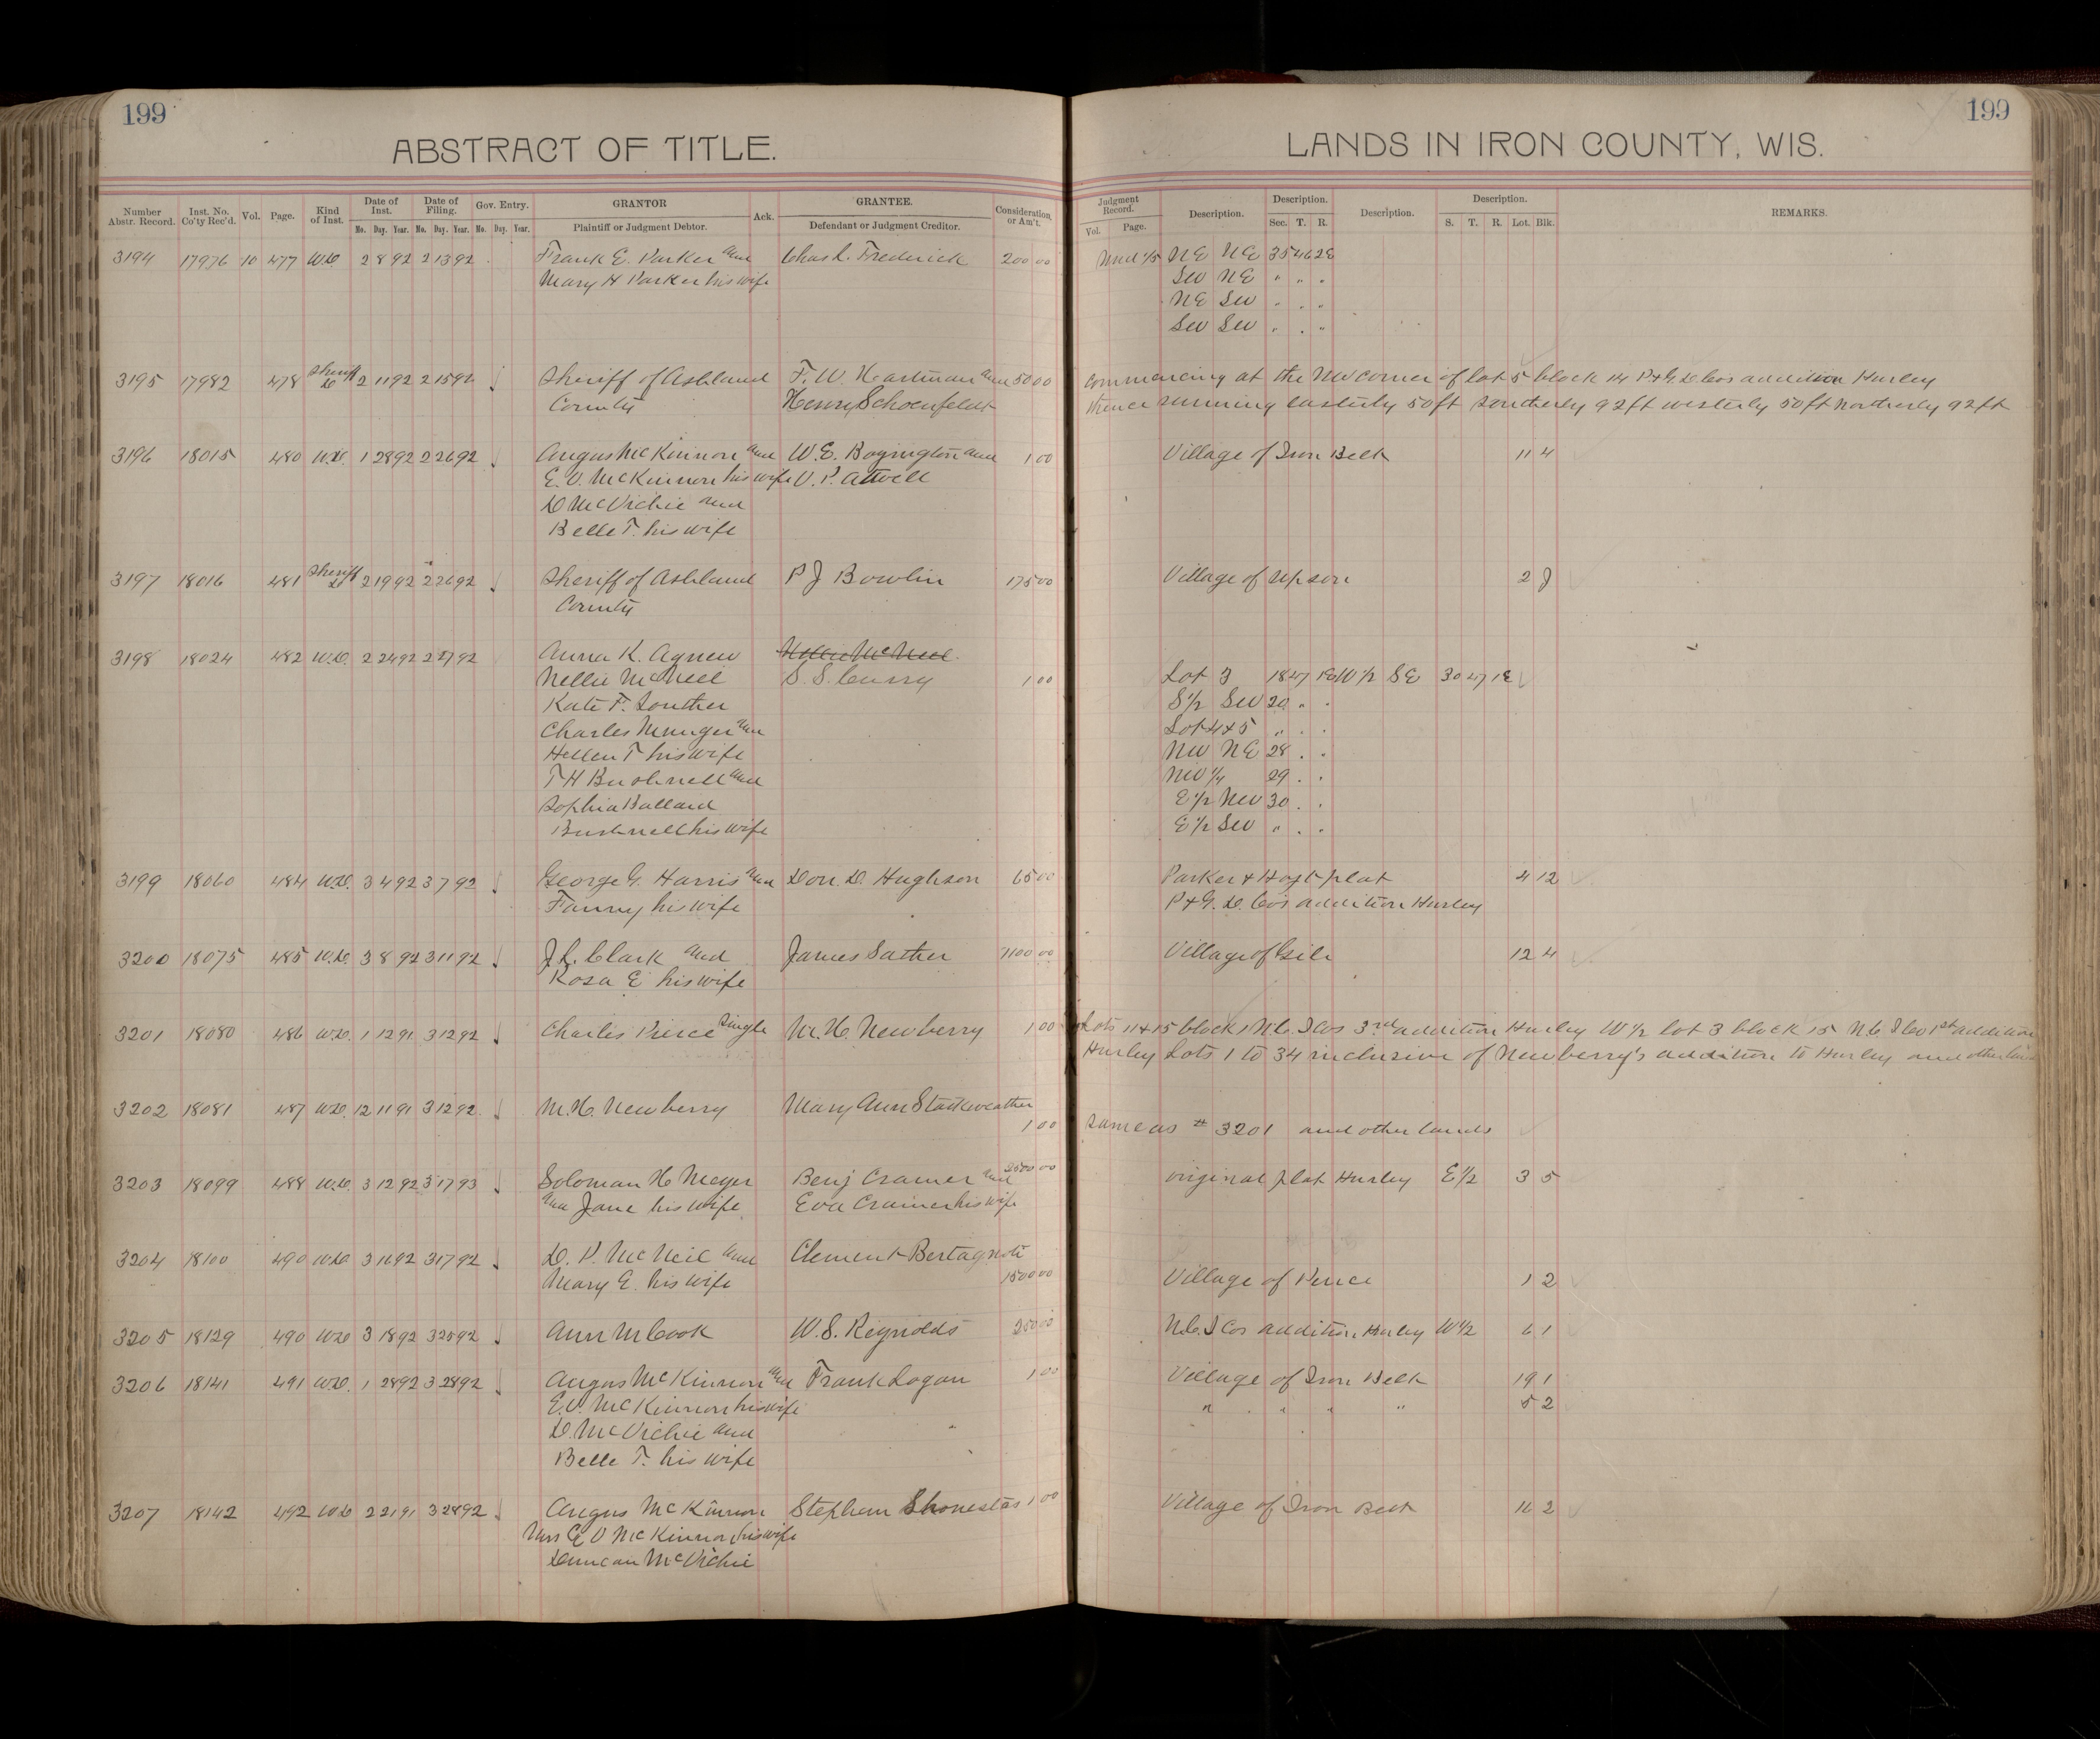 199
199
ABSTRACT OF TITLE.
LANDS IN IRON COUNTY, WIS.
Number Abstr. Record. Inst. No. Co'ty Rec'd. Vol. Page. Kind of Inst. Date of Inst. Date of Filing. Gov. Entry. GRANTOR Ack. GRANTEE. Consideration or Am't. Judgment Record. Description. Description. Description. Description. REMARKS.
Mo. Day. Year. Mo. Day. Year. Mo. Day. Year. Plaintiff or Judgment Debtor. Defendant or Judgment Creditor. Vol. Page. Sec. T. R. S. T. R. Lot. Blk.
3194 17976 10 477 W.D. 2 8 92 2 13 92 Frank E. Parker and Chas L. Frederick 200 00 Und 1/5 NE NE 35 46 2E
Mary H Parker his wife SW NE " " "
NE SW " " "
SW SW " " "
3195 17982 478 Sheriff D 2 11 92 2 15 92 Sheriff of Ashland F. W. Hartman and 50 00 commencing at the NW corner of lot 5 block 14 P+G. D. Cos addition Hurley
County Henry Schoenfeldt thence running easterly 50 ft southerly 92 ft westerly 50 ft northerly 92 ft
3196 18015 480 W.D. 1 28 92 2 26 92 Angus McKinnon and W. E. Boyington and 1 00 Village of Iron Belt 11 4
E. V. McKinnon his wife V. P. Atwell
D McVichie and
Belle T. his wife
3197 18016 481 Sheriff D 2 19 92 2 26 92 Sheriff of Ashland P J Bowlin 175 00 Village of Upson 2 J
County
3198 18024 482 W.D. 2 24 92 2 27 92 Anna K. Agnew Nellie McNeil
Nellie McNeil S. S. Curry 1 00 Lot 3 18 47 1E W 1/2 SE 30 47 1E
Kate F. Souther S 1/2 SW 20 " "
Charles Munger and Lot 4 + 5 " " "
Hellen T his wife NW NE 28 " "
T H Bushnell and NW 1/4 29 " "
Sophia Ballard E 1/2 NW 30 " "
Bushnell his wife E 1/2 SW " " "
3199 18060 484 W.D. 3 4 92 3 7 92 George G. Harris and Don. D. Hughson 65 00 Parker + Hoyt plat 4 12
Fanny his wife P+G. D. Co's addition Hurley
3200 18075 485 W.D. 3 8 92 3 11 92 J. L. Clark and James Sather 1100 00 Village of Gile 12 4
Rosa E his wife
3201 18080 486 W.D. 1 12 91 3 12 92 Charles Pierce Single M. H. Newberry 1 00 Lots 11 + 15 block 1 N.C. I Cos 3rd addition Hurley W 1/2 lot 3 block 15 N.C. I Co 1st addition
Hurley Lots 1 to 34 inclusive of Newberry's addition to Hurley and other lands
3202 18081 487 W.D. 12 11 91 3 12 92 M. H. Newberry Mary Ann Starkweather
1 00 Same as # 3201 and other lands
3203 18099 488 W.D. 3 12 92 3 17 93 Soloman H Meyer Benj Cramer and 2500 00 original plat Hurley E 1/2 3 5
and Jane his wife Eva Cramer his wife
3204 18100 490 W.D. 3 16 92 3 17 92 D. P. McNeil and Clement Bertagnoli
Mary E. his wife 1500 00 Village of Pence 1 2
3205 18129 490 W.D. 3 18 92 3 25 92 Ann M Cook W. S. Reynolds 250 00 N.C. I Cos addition Hurley W 1/2 6 1
3206 18141 491 W.D. 1 28 92 3 28 92 Angus McKinnon and Frank Logan 1 00 Village of Iron Belt 19 1
E. V. McKinnon his wife " " " " 5 2
D. McVichie and
Belle T. his wife
3207 18142 492 W.D. 2 21 91 3 28 92 Angus McKinnon Stephan 1 00 Village of Iron Belt 16 2
Mrs E V McKinnon his wife
Duncan McVichie